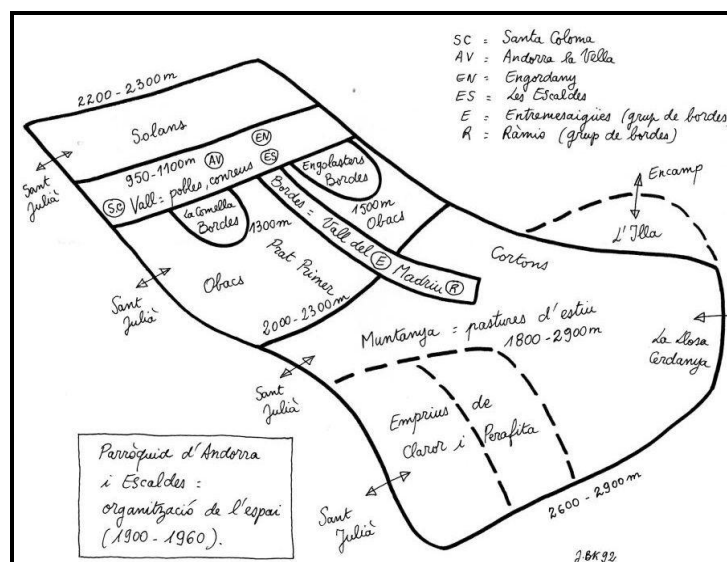 SC = Santa Coloma
AV = Andorra la Vella
EN = Engordany
ES = Les Escaldes
E = Entremesaigües (grup de bordes)
R = Ràmio (grup de bordes)
2200-2300m
Solans
Sant
Julià
950-1100m AV EN
SC Vall = pobles, conreus ES
La Comella
Bordes
1300m
Engolasters
Bordes
1500m
Obacs
Bordes = Vall del E Madriu R
Encamp
L'Illa
Cortons
Obacs
Prat Primer
Sant
Julià
2000-2300m
Muntanya = pastures d'estiu
1800-2900m
La Llosa
Cerdanya
Sant
Julià
Emprius de
Claror i Perafita
Sant
Julià
2600-2900m
Parròquia d'Andorra
i Escaldes :
organització de l'espai
(1900-1960).
J.BK92